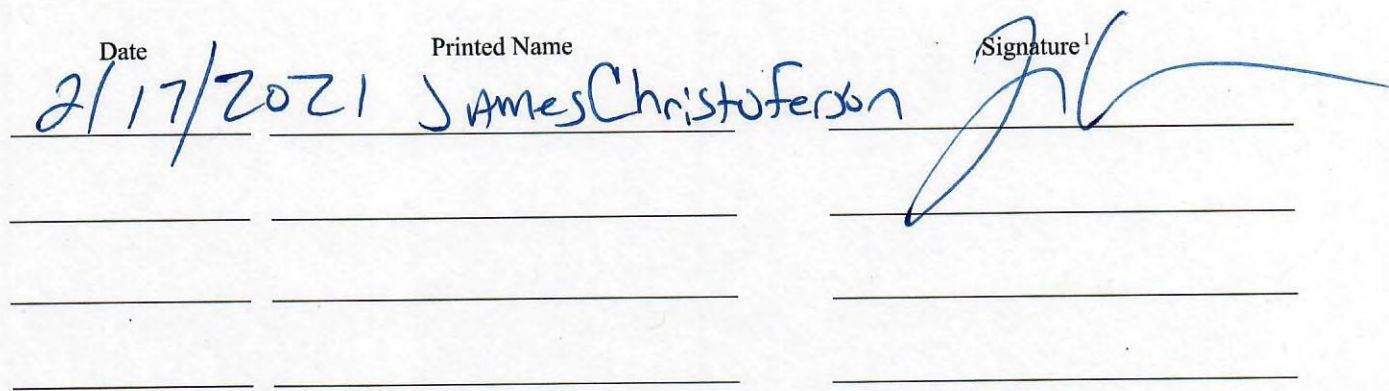 Date Printed Name Signature¹
2/17/2021 James Christoferson